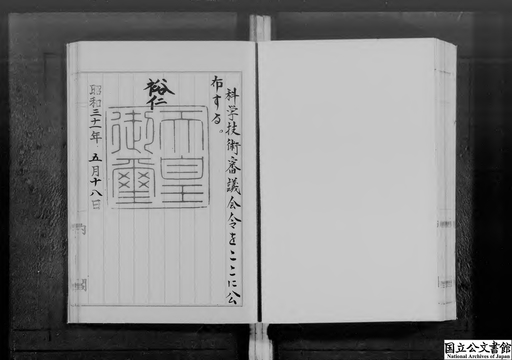 科学技術審議会令をここに公
布する。
裕仁
天皇
御璽
昭和三十一年 五月十八日
国立公文書館
National Archives of Japan